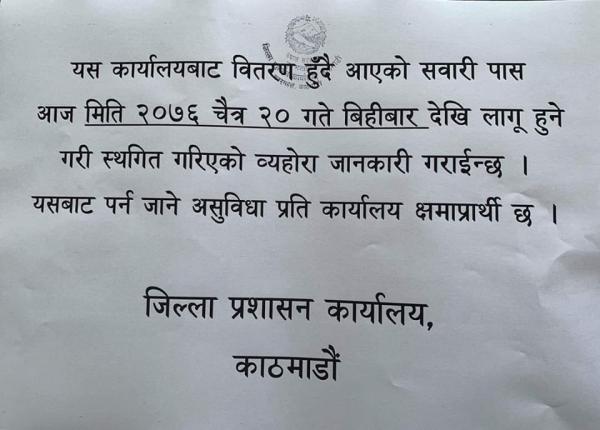 यस कार्यालयबाट वितरण हुँदै आएको सवारी पास
आज मिति २०७६ चैत्र २० गते बिहीबार देखि लागू हुने
गरी स्थगित गरिएको व्यहोरा जानकारी गराईन्छ ।
यसबाट पर्न जाने असुविधा प्रति कार्यालय क्षमाप्रार्थी छ ।
जिल्ला प्रशासन कार्यालय,
काठमाडौं